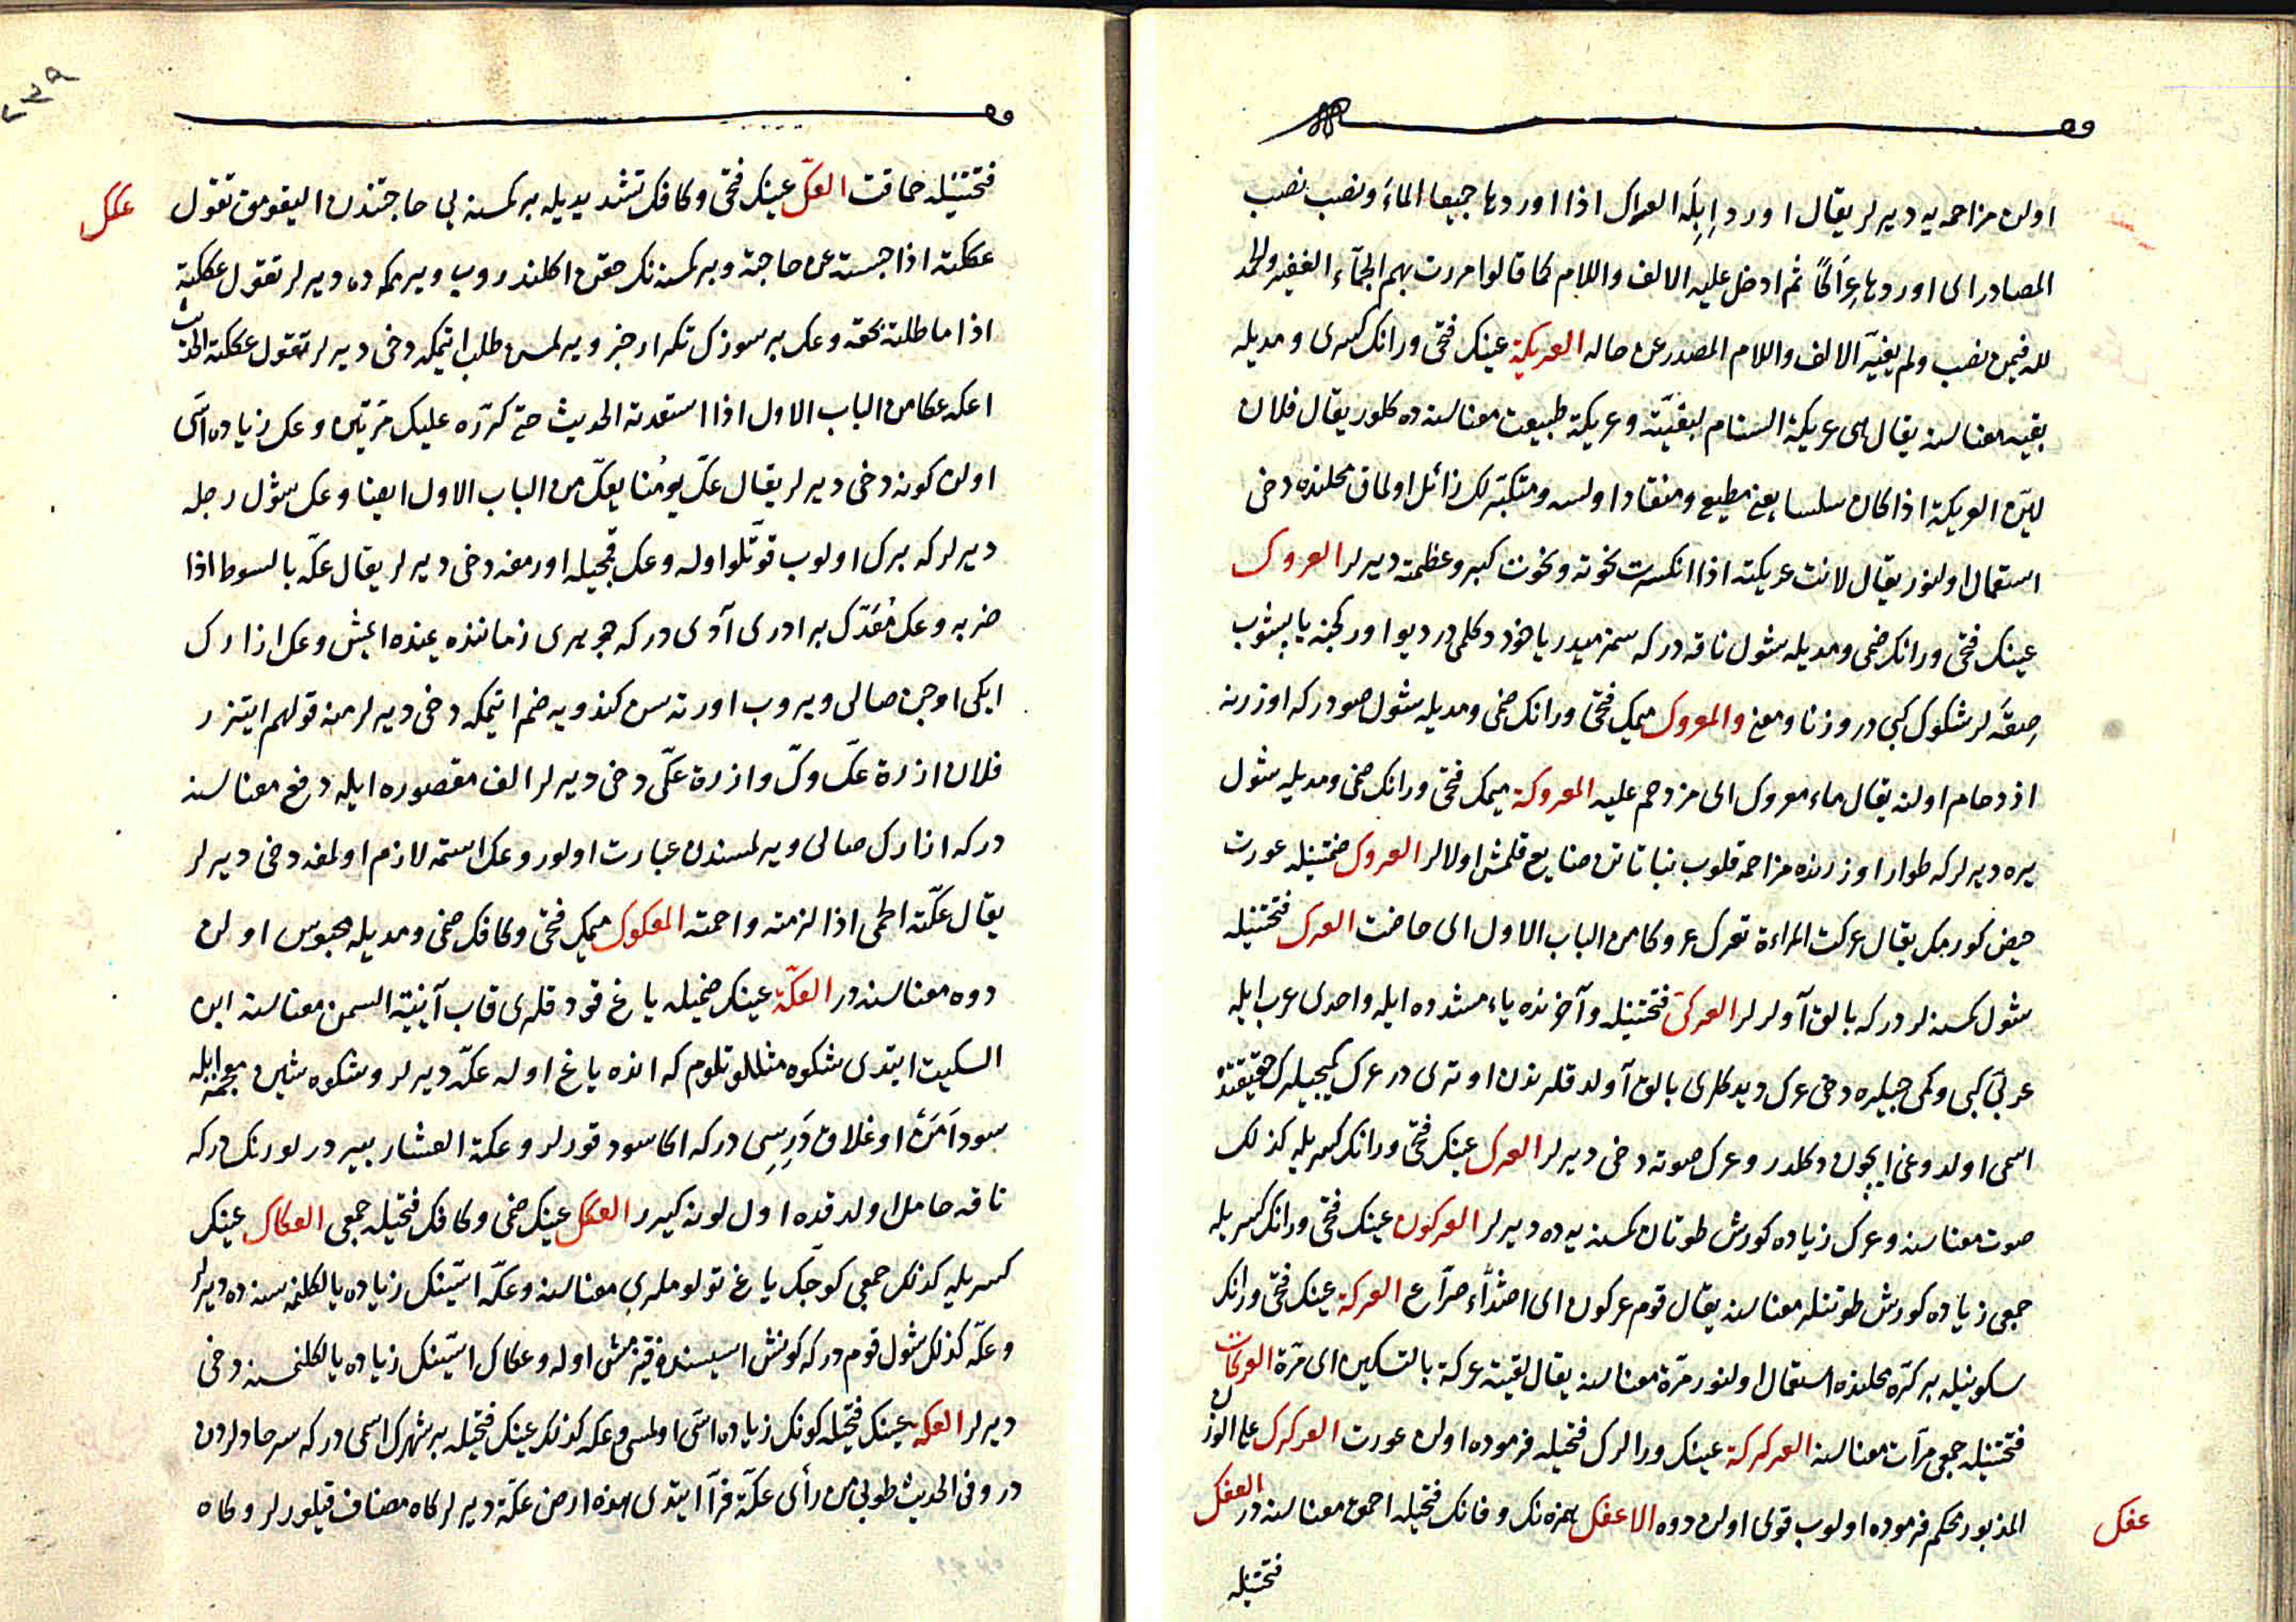 اولن مزاحمه يه ديرلر يقال اورد اِبِلَه العراك اذا اوردها جميعا الماءَ ونصب نصب
المصادر اى اوردها عِرَاكًا ثم ادخل عليه الالف واللام كما قالوا مررت بهم الجمّآء الغفير والحمد
لله فيمن نصب ولم يغيّر الالف واللام المصدر عن حاله العريكة عينك فتحى ورانك كسرى ومديله
بقيه معناسنه يقال هى عريكة السنام لبقيّته وعريكة طبيعت معناسنه ده كلور يقال فلان
ليّن العريكة اذا كان سلسا يعنى مطيع ومنقاد اولسه ومتكبّرلك زائل اولماق محلنده دخى
استعمال اولنور يقال لانت عريكته اذا انكسرت نخوته ونخوت كبر وعظمته ديرلر العروك
عينك فتحى ورانك ضمى ومديله شول ناقه دركه سمز ميدر ياخود دكلميدر ديو اوركجنه يابشوب
صقرلر شكوك كبى در وزنا ومعنى والمعروك ميمك فتحى ورانك ضمى ومديله شول صودركه اوزرنه
ازدحام اولنه يقال ماء معروك اى مزدحم عليه المعروكة ميمك فتحى ورانك ضمى ومديله شول
يره ديرلركه طوار اوزرنده مزاحمه قلوب نباتاتن ضايع قلمش اولالر العروك ضمتينله عورت
حيض كورمك يقال عركت المراءة تعرك عروكا من الباب الاول اى حاضت العرك فتحتينله
شول كمسنه لردركه بالق آولرلر العركى فتحتينله وآخرنده ياء مشدده ايله واحدى عرب ايله
عربى كبى وكمى جيلره دخى عرك ديدكلرى بالق آولدقلرندن اوترى در عرك كميجيلرك حقيقتده
اسمى اولدوغى ايچون دكلدر وعرك صوته دخى ديرلر العرك عينك فتحى ورانك كسريله كذلك
صوت معناسنه وعرك زياده كورش طوتان كمسنه يه ده ديرلر العركون عينك فتحى ورانك كسريله
جمعى زياده كورش طوتنلر معناسنه يقال قوم عركون اى اشدّاء صرّاع العركة عينك فتحى ورانك
سكونيله بر كرّه محلنده استعمال اولنور مرّة معناسنه يقال لقيته عركة بالتسكين اى مرّة العركات
فتحتينله جمعى مرّات معناسنه العركركة عينك ورالرك فتحيله فرموده اولن عورت العركرك على الوزن
المذبور محكم فرموده اولوب قوى اولن دوه الاعفك همزه نك وفانك فتحيله احمق معناسنه در العفك
عفك
فتحتينله
فتحتينله حماقت العكّ عينك فتحى وكافك تشديديله بر كمسنه يى حاجتندن اليقومق تقول
عكك
عككته اذا حبسته عن حاجته وبر كمسنه نك حقن اكلندروب ويرمكه ده ديرلر تقول عككته
اذا ماطلته بحقه وعك بر سوزك تكرار خبر ويرلمسن طلب ايتمكه دخى ديرلر تقول عككته الحديث
اعكه عكا من الباب الاول اذا استعدته الحديث حتى كرّره عليك مرّتين وعك زياده اسّى
اولن كونه دخى ديرلر يقال عكّ يومُنا يعكّ من الباب الاول ايضا وعك شول رجله
ديرلركه برك اولوب قوّتلو اوله وعك قمچيله اورمغه دخى ديرلر يقال عكّه بالسوط اذا
ضربه وعك مُعَدّك برادرى آدى دركه جوهرى زماننده يمنده ايمش وعك ازارك
ايكى اوجن صالى ويروب اورته سن كندويه ضم ايتمكه دخى ديرلر منه قولهم ايتزر
فلان ازرة عكّ وكّ وازرة عكّى دخى ديرلر الف مقصوره ايله دفع معناسنه
دركه ازارك صالى ويرلمسندن عبارت اولور وعك استمه لازم اولمغه دخى ديرلر
يقال عكّته الحمى اذا لزمته واحمته المعكوك ميمك فتحى وكافك ضمى ومديله محبوس اولن
دوه معناسنه در العكّة عينك ضميله ياغ قودقلرى قاب آنيّة السمن معناسنه ابن
السكيت ايتدى شكوه مثللو تلوم كه انده ياغ اوله عكّه ديرلر وشكوه شين معجمه ايله
سود اَمَنْ اوغلاق دَرِسِى دركه اكا سود قورلر وعكة العشار بير درلو رنك دركه
ناقه حامل اولدقده اول لونه كيرر العكك عينك ضمى وكافك فتحيله جمعى العكاك عينك
كسريله كذلك جمعى كوجك ياغ تولوملرى معناسنه وعكّه اسّينك زياده يالكلنمه سنه ده ديرلر
وعكّه كذلك شول قوم دركه كونش اسيسنده قيزمش اوله وعكاك اسّينك زياده يالكلنمسنه دخى
ديرلر العكه عينك فتحيله كونك زياده اسّى اولمسى وعكه كذلك عينك فتحيله بر شهرك اسمى دركه سرحدلردن
در وفى الحديث طوبى لمن رأى عكّة فرّآ ايتدى هذه ارض عكّة ديرلر كاه مضاف قيلورلر وكاه